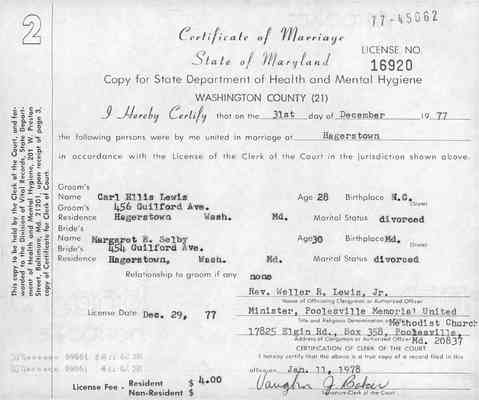 77-45062
2
Certificate of Marriage
State of Maryland
LICENSE NO.
16920
Copy for State Department of Health and Mental Hygiene
WASHINGTON COUNTY (21)
I Hereby Certify that on the 31st day of December 19 77
the following persons were by me united in marriage at Hagerstown
in accordance with the License of the Clerk of the Court in the jurisdiction shown above.
Groom's
Name Carl Ellis Lewis Age 28 Birthplace N.C.
(State)
Groom's 456 Guilford Ave.
Residence Hagerstown Wash. Md. Marital Status divorced
Bride's
Name Margaret E. Selby Age 30 Birthplace Md.
(State)
Bride's 454 Guilford Ave.
Residence Hagerstown, Wash. Md. Marital Status divorced
Relationship to groom if any none
Rev. Weller R. Lewis, Jr.
Name of Officiating Clergyman or Authorized Officer
License Date Dec. 29, 77
Minister, Poolesville Memorial United
Title and Religious Denomination
Methodist Church
17825 Elgin Rd., Box 358, Poolesville,
Address of Clergyman or Authorized Officer Md. 20837
CERTIFICATION OF CLERK OF THE COURT
I hereby certify that the above is a true copy of a record filed in this
office on Jan. 11, 1978
License Fee - Resident $ 4.00
Non-Resident $
Vaughn J. Baker
Signature-Clerk of the Court
This copy to be held by the Clerk of the Court, and for-
warded to the Division of Vital Records, State Depart-
ment of Health and Mental Hygiene, 201 W. Preston
Street, Baltimore, Md. 21201 upon receipt of page 3,
copy of Certificate for Clerk of Court.